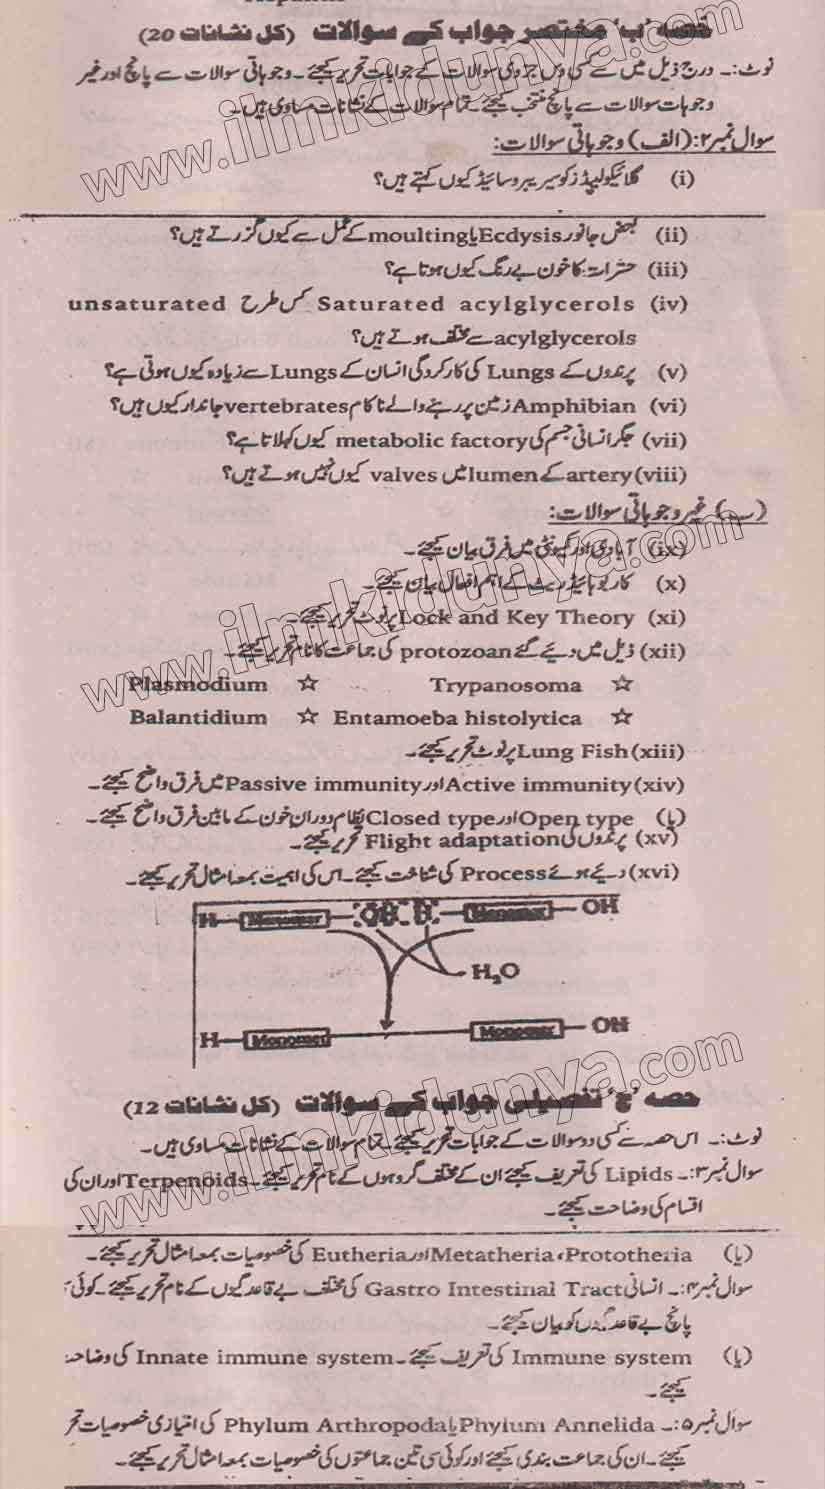 حصہ ’ب‘ مختصر جواب کے سوالات (کل نشانات 20)
نوٹ:۔ درج ذیل میں سے کسی دس جزوی سوالات کے جوابات تحریر کیجئے۔ وجوہاتی سوالات سے پانچ اور غیر
وجوہات سوالات سے پانچ منتخب کیجئے۔ تمام سوالات کے نشانات مساوی ہیں۔
سوال نمبر ۲: (الف) وجوہاتی سوالات:
(i) گلائیکولپڈز کو سیریبروسائیڈ کیوں کہتے ہیں؟
(ii) بعض جانور Ecdysis یا moulting کے عمل سے کیوں گزرتے ہیں؟
(iii) حشرات کا خون بے رنگ کیوں ہوتا ہے؟
(iv) Saturated acylglycerols کس طرح unsaturated
acylglycerols سے مختلف ہوتے ہیں؟
(v) پرندوں کے Lungs کی کارکردگی انسان کے Lungs سے زیادہ کیوں ہوتی ہے؟
(vi) Amphibian زمین پر رہنے والے ناکام vertebrates جاندار کیوں ہیں؟
(vii) جگر انسانی جسم کی metabolic factory کیوں کہلاتا ہے؟
(viii) artery کے lumen میں valves کیوں نہیں ہوتے ہیں؟
(ب) غیر وجوہاتی سوالات:
(ix) آبادی اور کمیونٹی میں فرق بیان کیجئے۔
(x) کاربوہائیڈریٹ کے اہم افعال بیان کیجئے۔
(xi) Lock and Key Theory پر نوٹ تحریر کیجئے۔
(xii) ذیل میں دیئے گئے protozoan کی جماعت کا نام تحریر کیجئے۔
☆ Trypanosoma ☆ Plasmodium
☆ Entamoeba histolytica ☆ Balantidium
(xiii) Lung Fish پر نوٹ تحریر کیجئے۔
(xiv) Active immunity اور Passive immunity میں فرق واضح کیجئے۔
(یا) Open type اور Closed type نظام دوران خون کے مابین فرق واضح کیجئے۔
(xv) پرندوں کی Flight adaptation تحریر کیجئے۔
(xvi) دیے ہوئے Process کی شناخت کیجئے۔ اس کی اہمیت بمعہ امثال تحریر کیجئے۔
H Monomer OH H Monomer OH
H₂O
H Monomer Monomer OH
حصہ ’ج‘ تفصیلی جواب کے سوالات (کل نشانات 12)
نوٹ:۔ اس حصہ سے کسی دو سوالات کے جوابات تحریر کیجئے۔ تمام سوالات کے نشانات مساوی ہیں۔
سوال نمبر ۳:۔ Lipids کی تعریف کیجئے ان کے مختلف گروہوں کے نام تحریر کیجئے۔ Terpenoids اور ان کی
اقسام کی وضاحت کیجئے۔
(یا) Prototheria، Metatheria اور Eutheria کی خصوصیات بمعہ امثال تحریر کیجئے۔
سوال نمبر ۴:۔ انسانی Gastro Intestinal Tract کی مختلف بے قاعدگیوں کے نام تحریر کیجئے۔ کوئی
پانچ بے قاعدگیوں کو بیان کیجئے۔
(یا) Immune system کی تعریف کیجئے۔ Innate immune system کی
کیجئے۔
سوال نمبر ۵:۔ Phylum Annelida یا Phylum Arthropoda کی امتیازی خصوصیات
کیجئے۔ ان کی جماعت بندی کیجئے اور کوئی سی تین جماعتوں کی خصوصیات بمعہ امثال تحریر کیجئے۔
www.ilmkidunya.com
www.ilmkidunya.com
www.ilmkidunya.com